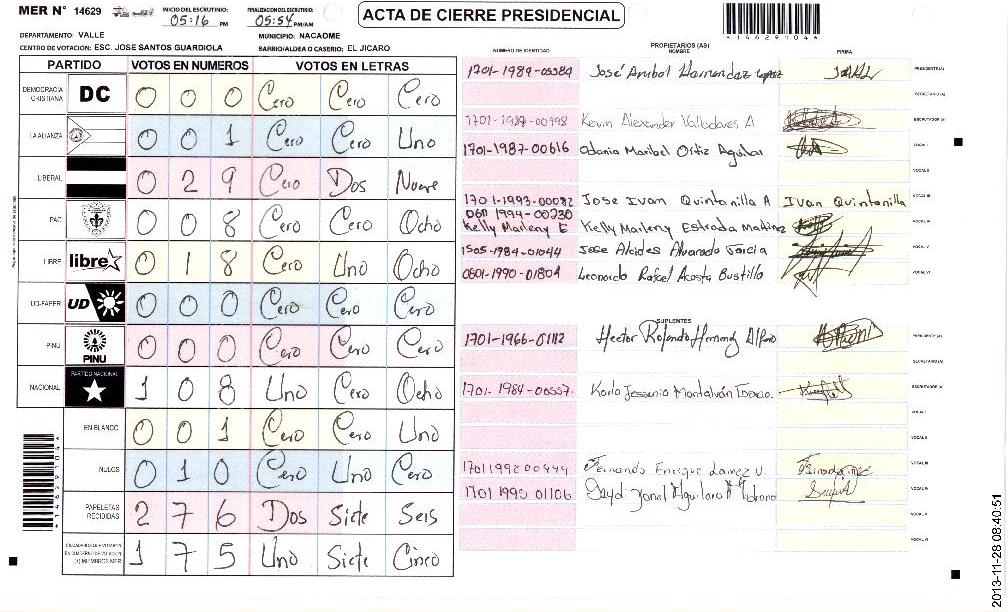 MER N° 14629
INICIO DEL ESCRUTINIO: 05:16 PM
FINALIZACION DEL ESCRUTINIO: 05:54 PM/AM
ACTA DE CIERRE PRESIDENCIAL
*14629104*
DEPARTAMENTO: VALLE
MUNICIPIO: NACAOME
CENTRO DE VOTACION: ESC. JOSE SANTOS GUARDIOLA
BARRIO/ALDEA O CASERIO: EL JICARO
PARTIDO VOTOS EN NUMEROS VOTOS EN LETRAS
DEMOCRACIA CRISTIANA DC 0 0 0 Cero Cero Cero
LA ALIANZA 0 0 1 Cero Cero Uno
LIBERAL 0 2 9 Cero Dos Nueve
PAC 0 0 8 Cero Cero Ocho
LIBRE libre 0 1 8 Cero Uno Ocho
UD-FAPER UD 0 0 0 Cero Cero Cero
PINU PINU 0 0 0 Cero Cero Cero
NACIONAL PARTIDO NACIONAL 1 0 8 Uno Cero Ocho
EN BLANCO 0 0 1 Cero Cero Uno
NULOS 0 1 0 Cero Uno Cero
PAPELETAS RECIBIDAS 2 7 6 Dos Siete Seis
CIUDADANOS QUE VOTARON EN CUADERNO DE VOTACION (+) MIEMBROS MER 1 7 5 Uno Siete Cinco
PROPIETARIOS (AS)
NUMERO DE IDENTIDAD NOMBRE FIRMA
1701-1989-05589 José Anibal Hernandez Lopez PRESIDENTE (A)
SECRETARIO (A)
1701-1987-00998 Kevin Alexander Valladares A ESCRUTADOR (A)
1701-1987-00616 Odania Maribel Ortiz Aguilar VOCAL I
VOCAL II
1701-1993-00032 Jose Ivan Quintanilla A Ivan Quintanilla VOCAL III
1994-00230
Kelly Marleny E Kelly Marleny Estrada Martinez VOCAL IV
1505-1984-01044 Jose Alcides Alvarado Garcia VOCAL V
0801-1990-01804 Leonardo Rafael Acosta Bustillo VOCAL VI
SUPLENTES
1701-1966-01112 Hector Rolando PRESIDENTE (A)
SECRETARIO (A)
1701-1984-00557 Karla Jessenia Montalván ESCRUTADOR (A)
VOCAL I
VOCAL II
1701 1992 00444 Fernando Enrique VOCAL III
1701 1990 01106 VOCAL IV
VOCAL V
VOCAL VI
2013-11-28 08:40:51